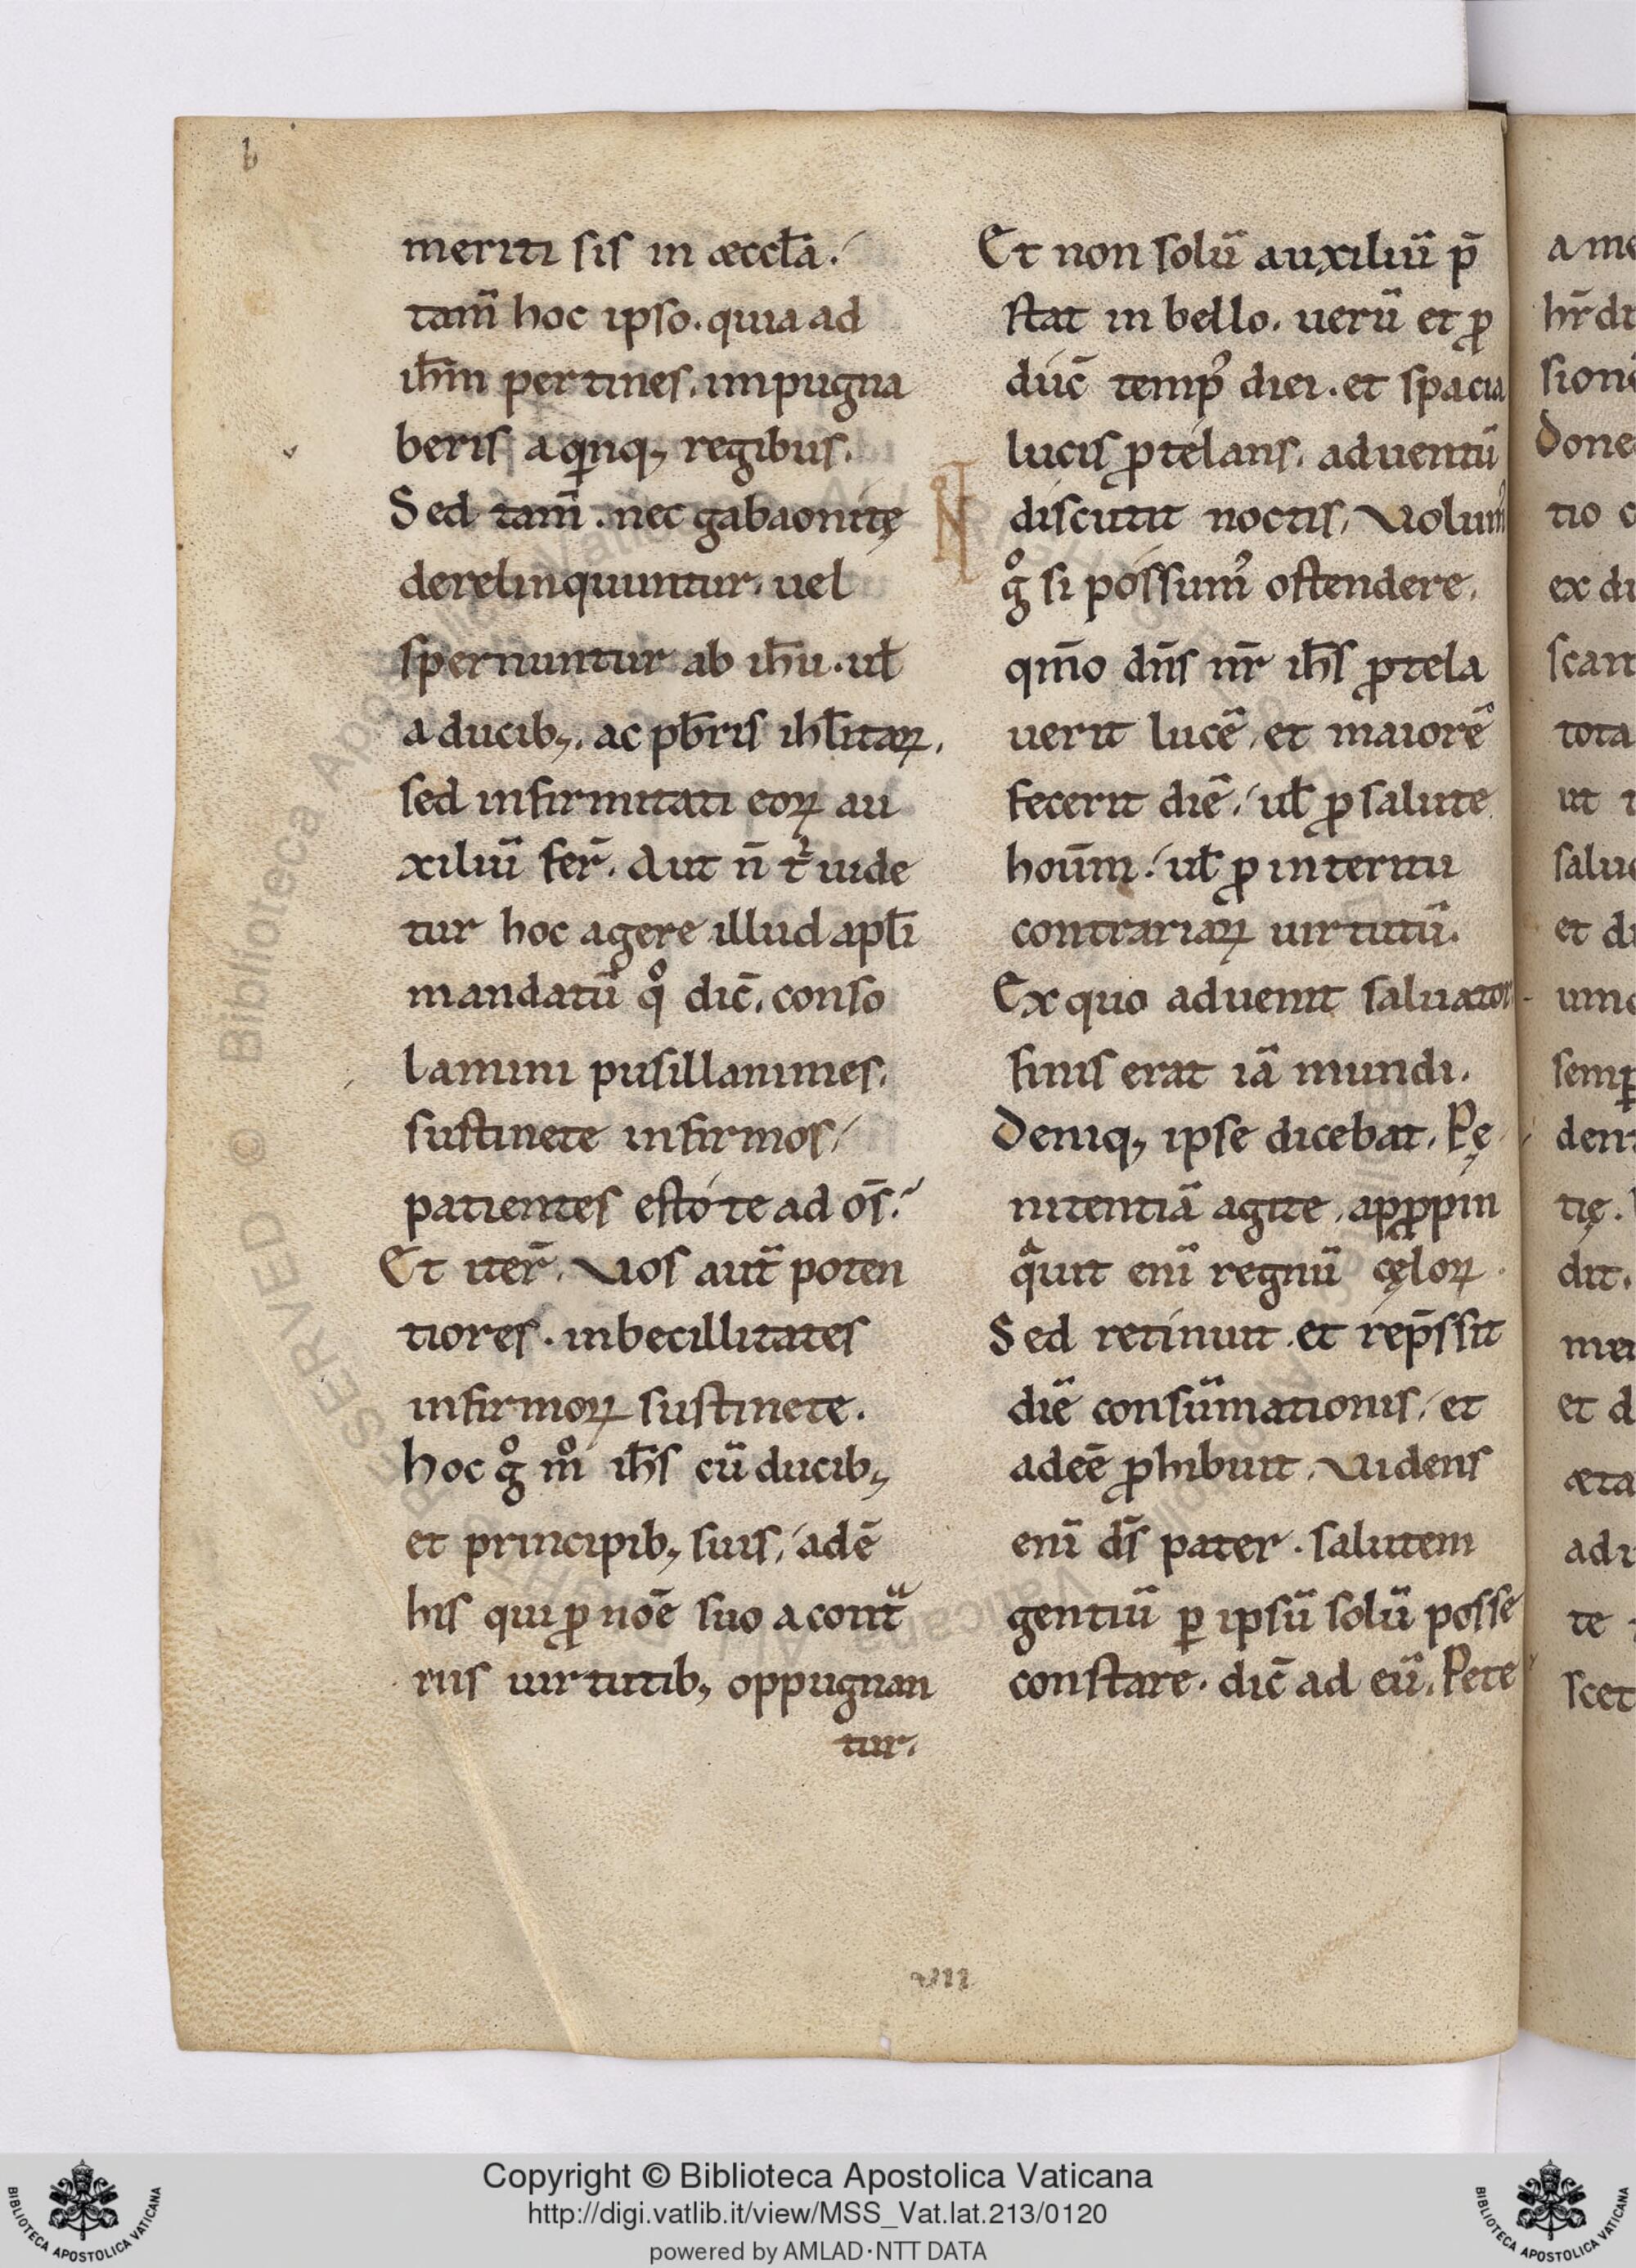 b
meriti sis in æccl̄a.
tam̄ hoc ipso. quia ad
ih̄m pertines. impugna
beris a qͥnq; regibus.
Sed tam̄. nec gabaonitę
derelinquuntur. uel
spernuntur ab ih̄u. ul̄
a ducib;. ac pb̄ris ihl̄itaꝝ.
sed infirmitati eoꝝ au
xiliū fer̄. Aut n̄ tͥ uide
tur hoc agere illud apl̄i
mandatū qͦ dic̄. conso
lamini pusillanimes.
sustinete infirmos/
patientes estote ad om̄s.
Et iter̄. Vos aut̄ poten
tiores. inbecillitates
infirmoꝝ sustinete.
hoc gͦ mͦ ih̄s cū ducib;
et principib; suis, adē
his qui ꝓ noē suo a contᵃ
riis uirtutib; oppugnan
tur.
Et non solū auxiliū p̄
stat in bello. uerū et ꝓ
duc̄ tempꝰ diei. et spacia
lucis ꝓtelans. aduentū
discutit noctis. Volumꝰ
N
gͦ si possumꝰ ostendere.
qm̄o dn̄s nr̄ ih̄s ꝓtela
uerit lucē, et maiorē
fecerit diē, ul̄ ꝓ salute
hoūm, ul̄ ꝓ interitu
contrariaꝝ uirtutū.
Ex quo aduenit saluator
finis erat iā mundi.
Deniq; ipse dicebat. Pę
nitentiā agite, apꝓpin
qͣuit enī regnū cęloꝝ.
Sed retinuit et rep̄ssit
diē consūmationis, et
adeē ꝓhibuit. Videns
enī ds̄ pater. salutem
gentiū ꝑ ipsū solū posse
constare. dic̄ ad eū. Pete
a me
hr̄di
sionē
done
tio
ex di
tota
ut
et di
semꝑ
tię.
dit.
et d
æta
te
scet
VIII
© Biblioteca Apostolica Vaticana
Copyright © Biblioteca Apostolica Vaticana
http://digi.vatlib.it/view/MSS_Vat.lat.213/0120
powered by AMLAD·NTT DATA
BIBLIOTECA APOSTOLICA VATICANA
BIBLIOTECA APOSTOLICA VATICANA